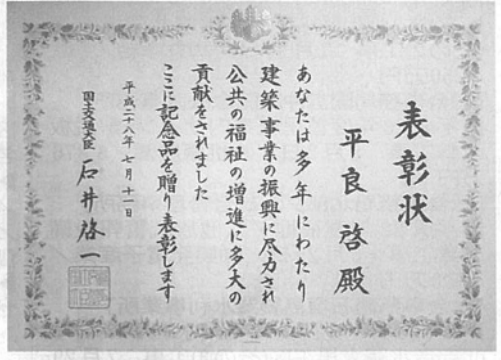 表彰状
平良 啓 殿
あなたは多年にわたり
建築事業の振興に尽力され
公共の福祉の増進に多大の
貢献をされました
ここに記念品を贈り表彰します
平成二十八年七月十一日
国土交通大臣 石井啓一